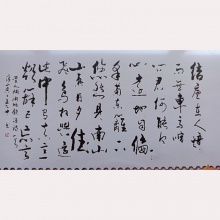 结庐在人境
而無車馬喧
问君何能尔
心遠地自偏
采菊东篱下
悠然见南山
山氣日夕佳
飛鳥相与還
此中有真意
欲辨已忘言